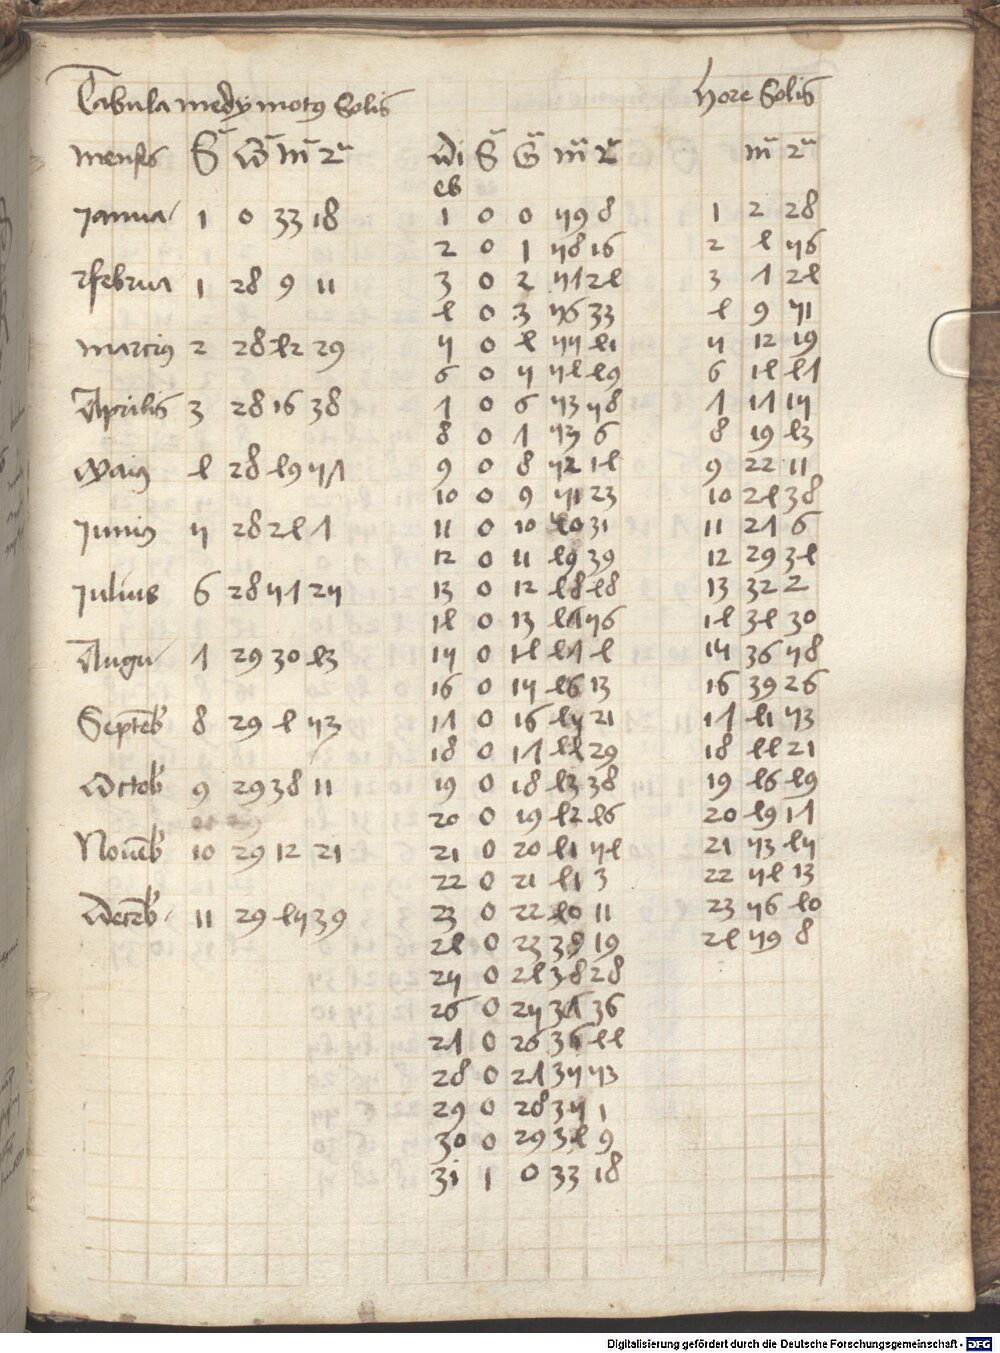 Tabula medij motus Solis
Menses S G M 2
Janua 1 0 33 18
Februa 1 28 9 11
Marcius 2 28 42 29
Aprilis 3 28 16 38
Maius 4 28 49 57
Junius 5 28 24 7
Julius 6 28 57 25
Augu 7 29 30 43
Septeb 8 29 4 53
Octob 9 29 38 11
Noueb 10 29 12 21
Deceb 11 29 45 39
Di S G M 2
eb
1 0 0 59 8
2 0 1 58 16
3 0 2 57 24
4 0 3 56 33
5 0 4 55 41
6 0 5 54 49
7 0 6 53 58
8 0 7 53 6
9 0 8 52 14
10 0 9 51 23
11 0 10 50 31
12 0 11 49 39
13 0 12 48 48
14 0 13 47 56
15 0 14 47 4
16 0 15 46 13
17 0 16 45 21
18 0 17 44 29
19 0 18 43 38
20 0 19 42 46
21 0 20 41 54
22 0 21 41 3
23 0 22 40 11
24 0 23 39 19
25 0 24 38 28
26 0 25 37 36
27 0 26 36 44
28 0 27 35 53
29 0 28 35 1
30 0 29 34 9
31 1 0 33 18
Hore Solis
M 2
1 2 28
2 4 56
3 7 24
4 9 51
5 12 19
6 14 47
7 17 15
8 19 43
9 22 11
10 24 38
11 27 6
12 29 34
13 32 2
14 34 30
15 36 58
16 39 26
17 41 53
18 44 21
19 46 49
20 49 17
21 53 45
22 54 13
23 56 40
24 59 8
Digitalisierung gefördert durch die Deutsche Forschungsgemeinschaft - DFG